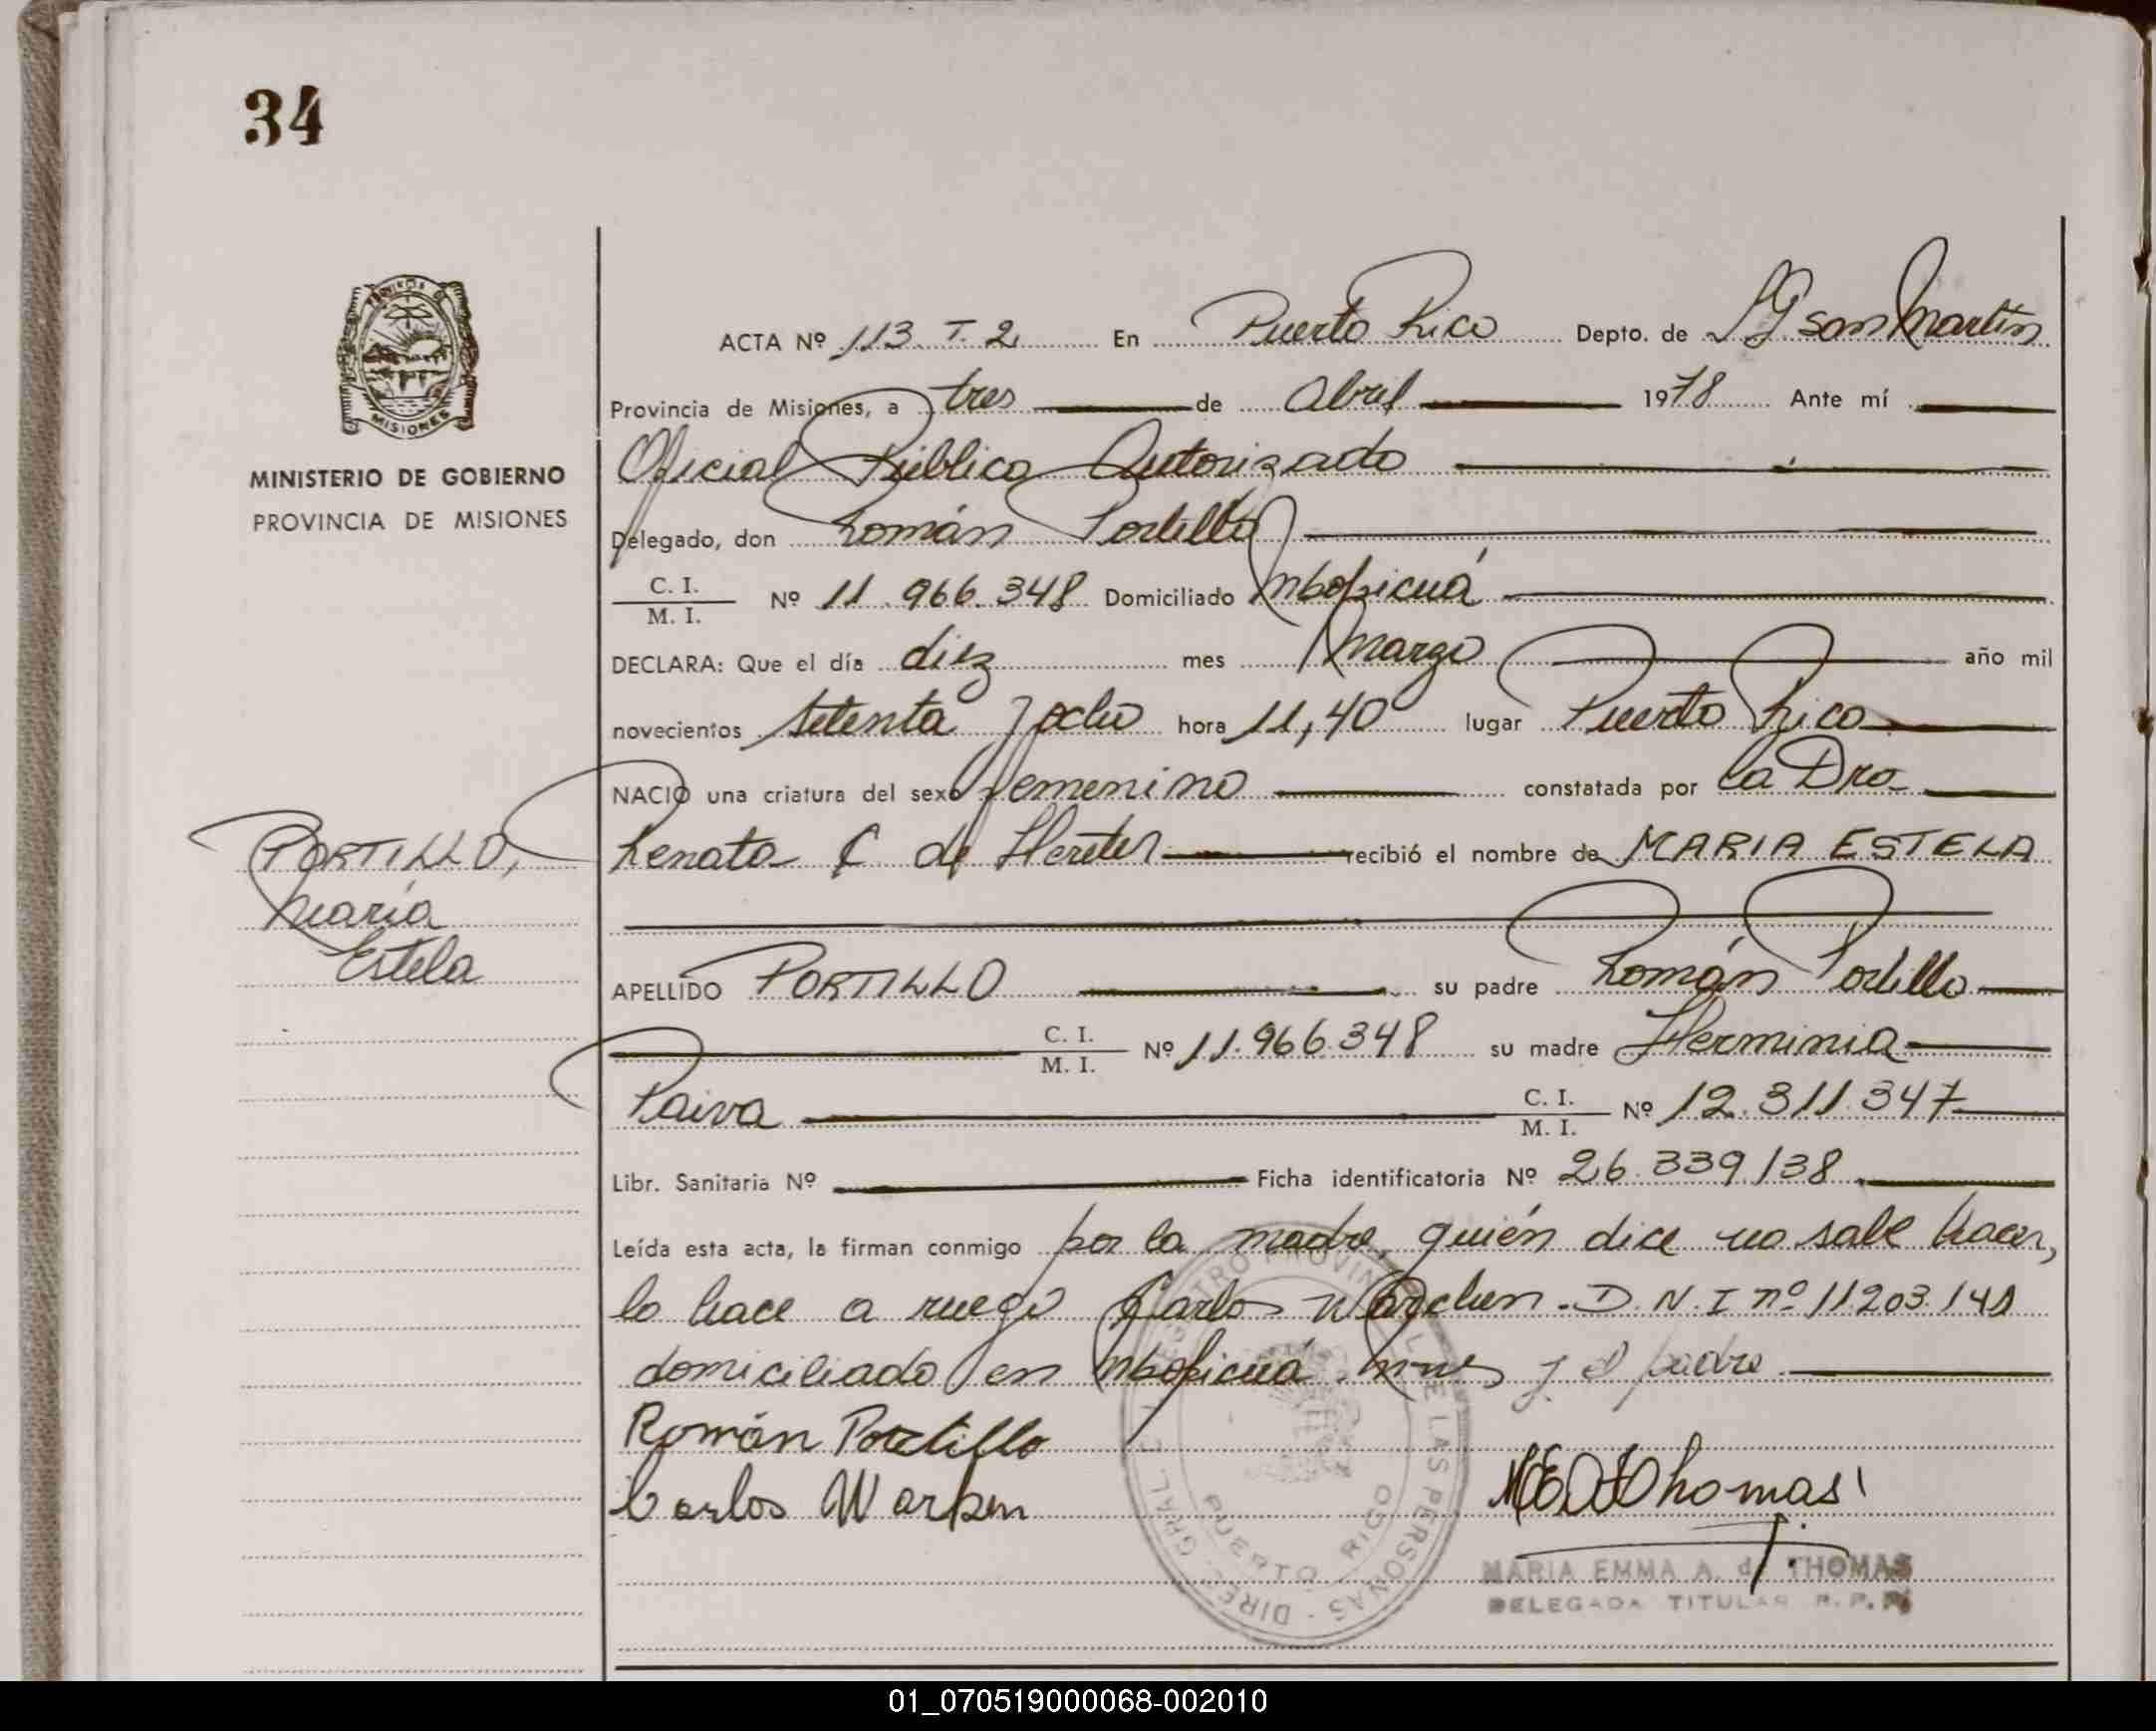 34
MINISTERIO DE GOBIERNO
PROVINCIA DE MISIONES
ACTA Nº 113 T. 2 En Puerto Rico Depto. de LG San Martín
Provincia de Misiones, a tres de Abril 1978 Ante mí
Oficial Público Autorizado
Delegado, don Román Portillo
C. I.
M. I. Nº 11.966.348 Domiciliado Mbopicuá
DECLARA: Que el día diez mes Marzo año mil
novecientos setenta y ocho hora 11,40 lugar Puerto Rico
NACIO una criatura del sexo femenino constatada por la Dra
Renata C de recibió el nombre de MARIA ESTELA
PORTILLO,
María
Estela
APELLIDO PORTILLO su padre Román Portillo
C. I.
M. I. Nº 11.966.348 su madre Herminia
Paiva C. I.
M. I. Nº 12.311.347
Libr. Sanitaria Nº Ficha identificatoria Nº 26.339.138
Leída esta acta, la firman conmigo por la madre, quién dice no sabe hacer,
lo hace a ruego Carlos D.N.I nº 11203.141
domiciliado en Mbopicuá Mnes y el padre
Román Portillo
Carlos Warken
MEAdThomas
MARIA EMMA A. de THOMAS
DELEGADA TITULAR R. P. P.
PUERTO RICO
01_070519000068-002010